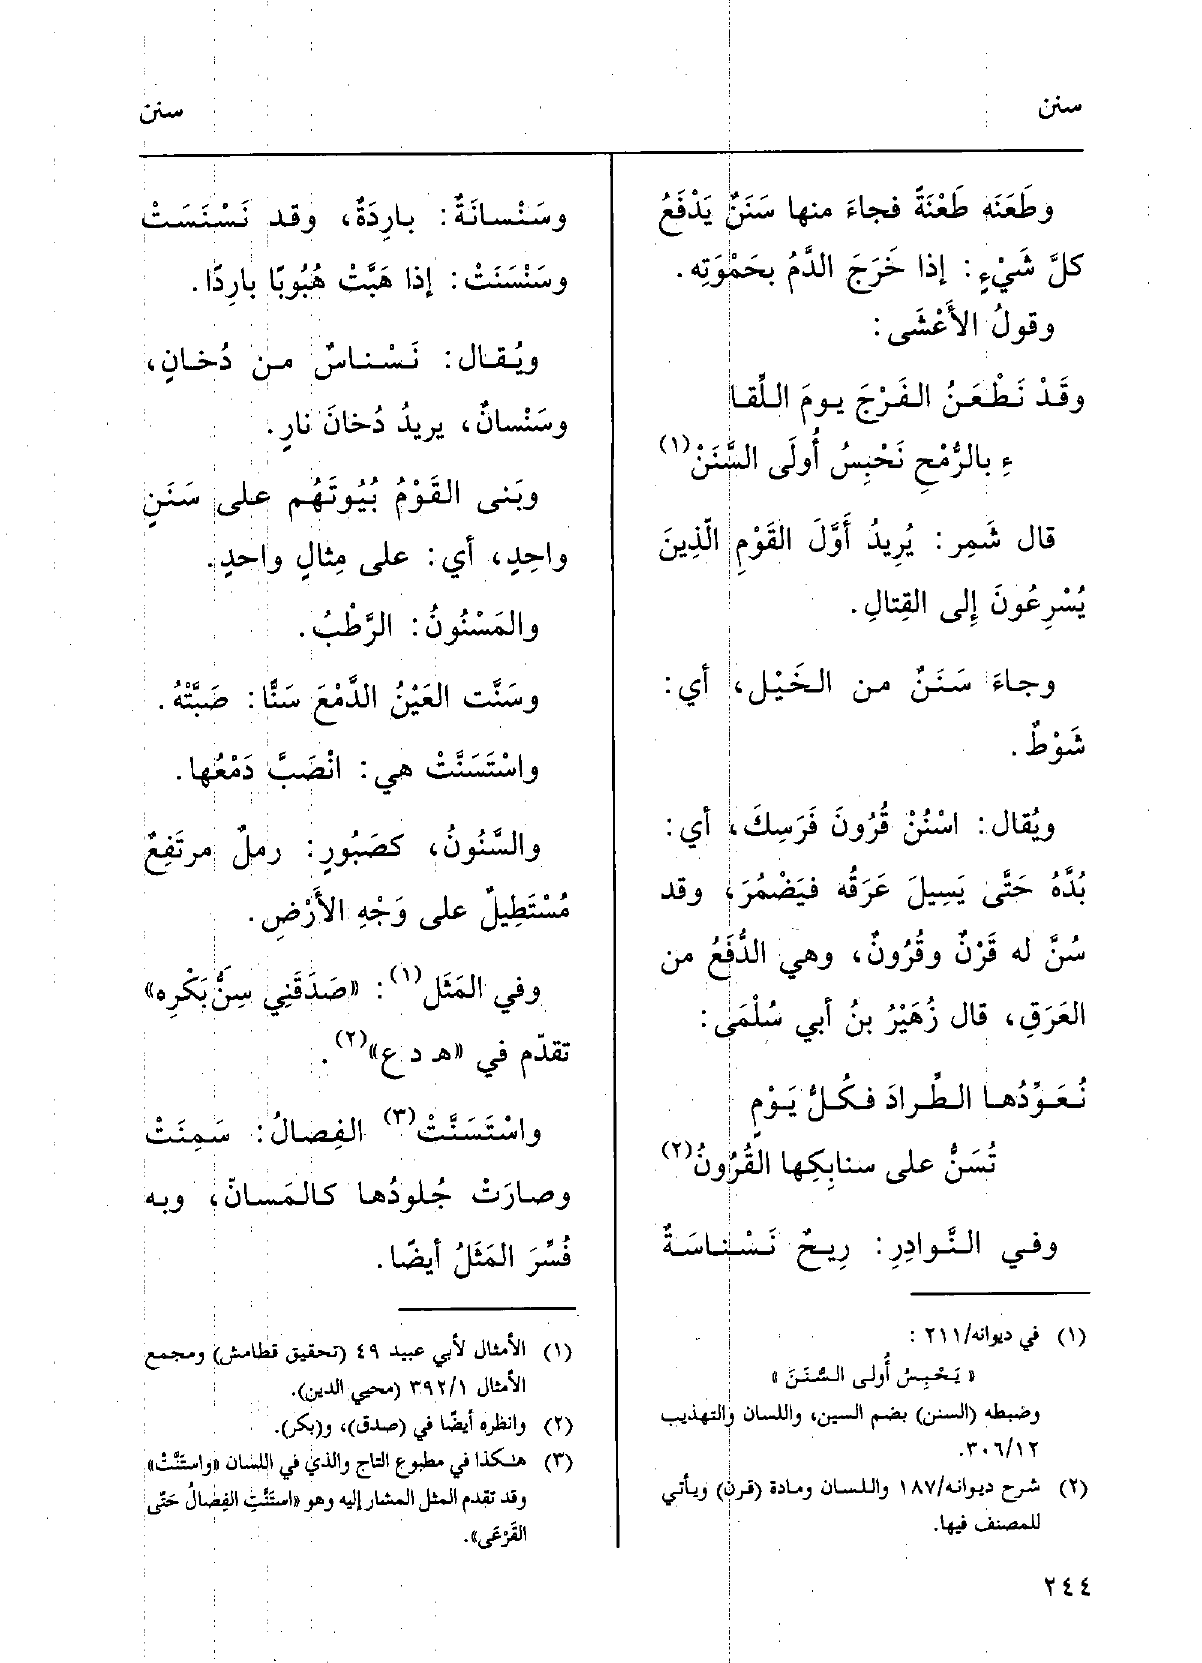 سنن
سنن
وطَعَنَه طَعْنَةً فجاءَ منها سَنَنٌ يَدْفَعُ
كلَّ شَيْءٍ: إذا خَرَجَ الدَّمُ بحَمْوَتِه.
وقولُ الأَعْشَى:
وقَدْ نَطْعَنُ الفَرْجَ يومَ اللِّقا
ءِ بالرُّمْحِ نَحْبِسُ أُولَى السَّنَنْ(١)
قال شَمِر: يُرِيدُ أَوَّلَ القَوْمِ الّذِينَ
يُسْرِعُونَ إِلى القِتالِ.
وجاءَ سَنَنٌ من الخَيْل، أي:
شَوْطٌ.
ويُقال: اسْنُنْ قُرُونَ فَرَسِكَ، أي:
بُدَّهُ حَتَّى يَسِيلَ عَرَقُه فيَضْمُرَ، وقد
سُنَّ له قَرْنٌ وقُرُونٌ، وهي الدُّفَعُ من
العَرَقِ، قال زُهَيْرُ بنُ أبي سُلْمَى:
نُعَوِّدُها الطِّرادَ فكُلُّ يَوْمٍ
تُسَنُّ على سنابِكِها القُرُونُ(٢)
وفي النَّوادِرِ: رِيحٌ نَسْناسَةٌ
(١) في ديوانه/٢١١ :
« يَحْبِسُ أُولى السُّنَنَ »
وضبطه (السنن) بضم السين، واللسان والتهذيب
٣٠٦/١٢.
(٢) شرح ديوانه/١٨٧ واللسان ومادة (قرن) ويأتي
للمصنف فيها.
٢٤٤
وسَنْسانَةٌ: بارِدَةٌ، وقد نَسْنَسَتْ
وسَنْسَنَتْ: إذا هَبَّتْ هُبُوبًا بارِدًا.
ويُقال: نَسْناسٌ من دُخانٍ،
وسَنْسانٌ، يريدُ دُخانَ نارٍ.
وبَنى القَوْمُ بُيُوتَهُم على سَنَنٍ
واحِدٍ، أي: على مِثالٍ واحدٍ.
والمَسْنُونُ: الرَّطْبُ.
وسَنَّت العَيْنُ الدَّمْعَ سَنًّا: صَبَّتْهُ.
واسْتَسَنَّتْ هي: انْصَبَّ دَمْعُها.
والسَّنُونُ، كصَبُورٍ: رملٌ مرتَفِعٌ
مُسْتَطِيلٌ على وَجْهِ الأَرْضِ.
وفي المَثَل(١): «صَدَقَنِي سِنُّ بَكْرِه»
تقدّم في «هـ د ع»(٢).
واسْتَسَنَّتْ(٣) الفِصالُ: سَمِنَتْ
وصارَتْ جُلودُها كالمَسانّ، وبه
فُسِّرَ المَثَلُ أيضًا.
(١) الأمثال لأبي عبيد ٤٩ (تحقيق قطامش) ومجمع
الأمثال ٣٩٢/١ (محيي الدين).
(٢) وانظره أيضًا في (صدق)، و(بكر).
(٣) هٰكذا في مطبوع التاج والذي في اللسان «واستَنَّتْ»
وقد تقدم المثل المشار إليه وهو «استَنَّتِ الفِصَالُ حَتّى
القَرْعَى».